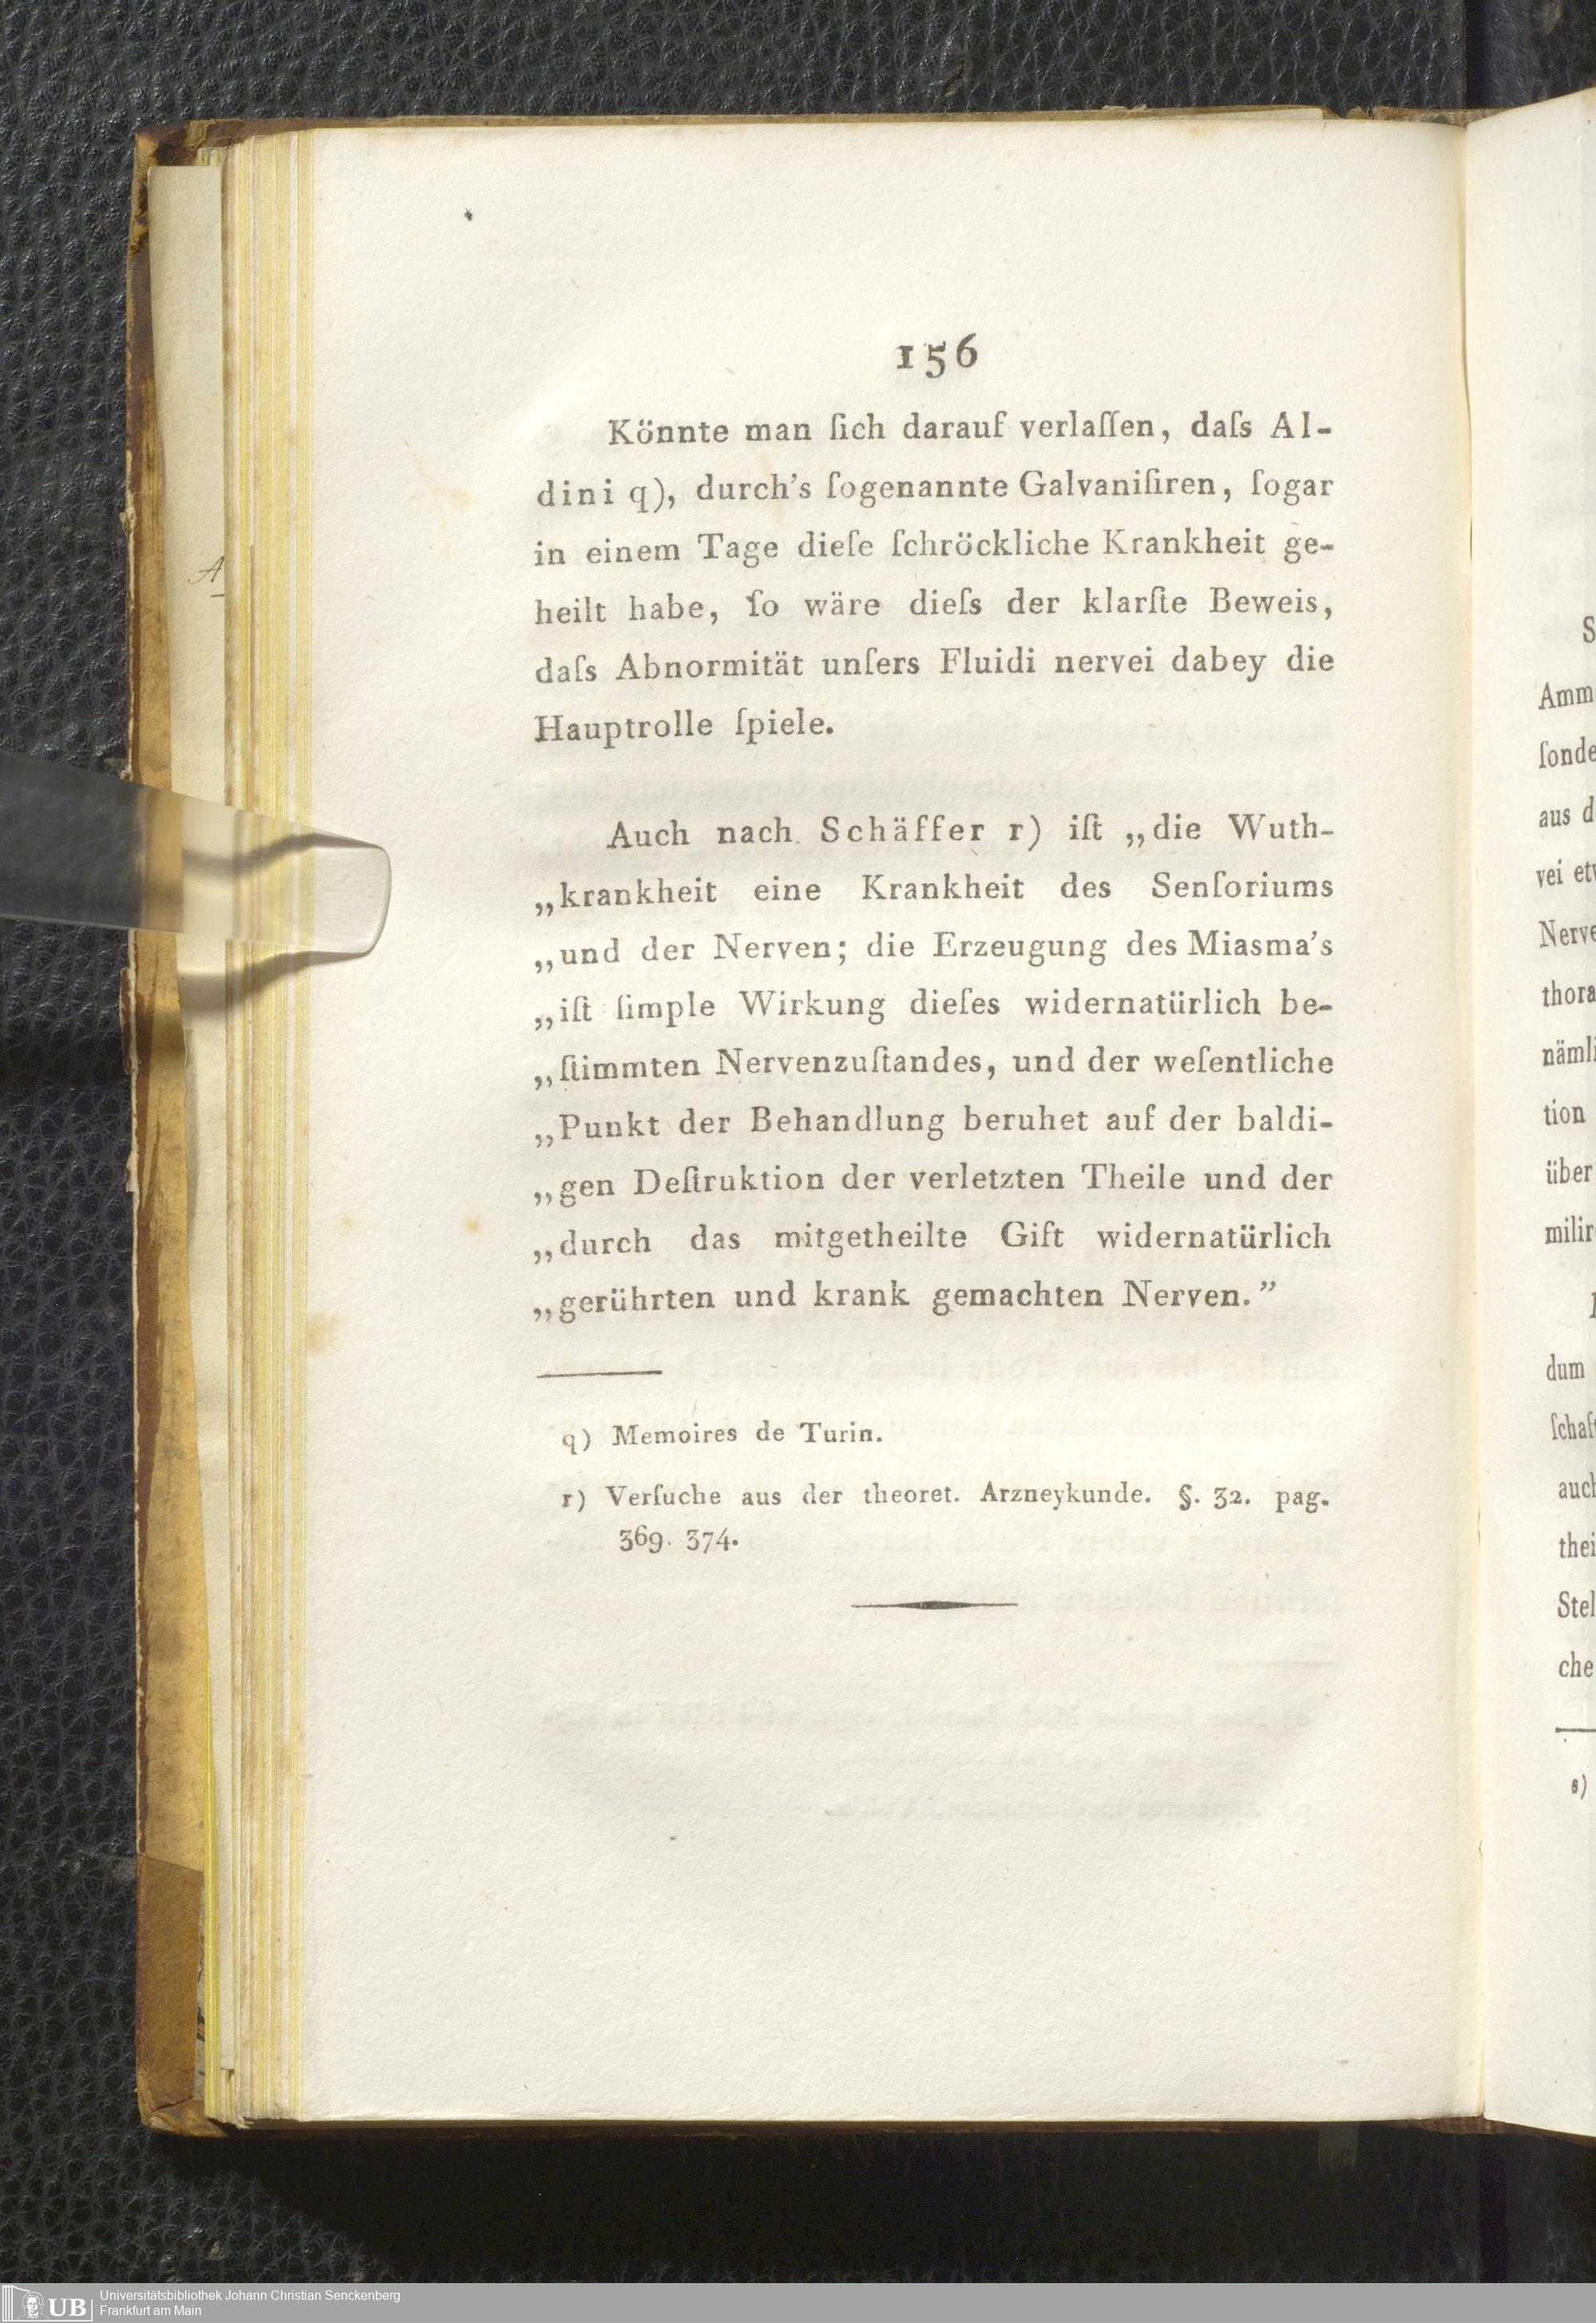 156
Könnte man ſich darauf verlaſſen, daſs Al-
dini q), durch's ſogenannte Galvaniſiren, ſogar
in einem Tage dieſe ſchröckliche Krankheit ge-
heilt habe, ſo wäre dieſs der klarſte Beweis,
daſs Abnormität unſers Fluidi nervei dabey die
Hauptrolle ſpiele.
Auch nach Schäffer r) iſt „die Wuth-
„krankheit eine Krankheit des Senſoriums
„und der Nerven; die Erzeugung des Miasma's
„iſt ſimple Wirkung dieſes widernatürlich be-
„ſtimmten Nervenzuſtandes, und der weſentliche
„Punkt der Behandlung beruhet auf der baldi-
„gen Deſtruktion der verletzten Theile und der
„durch das mitgetheilte Gift widernatürlich
„gerührten und krank gemachten Nerven.”
q) Memoires de Turin.
r) Verſuche aus der theoret. Arzneykunde. §. 32. pag.
369. 374.
A
S
Amm
ſonde
aus d
vei et
Nerve
thora
nämli
tion
über
milir
dum
ſchaft
auch
thei
Stel
che
s)
UB
Universitätsbibliothek Johann Christian Senckenberg
Frankfurt am Main